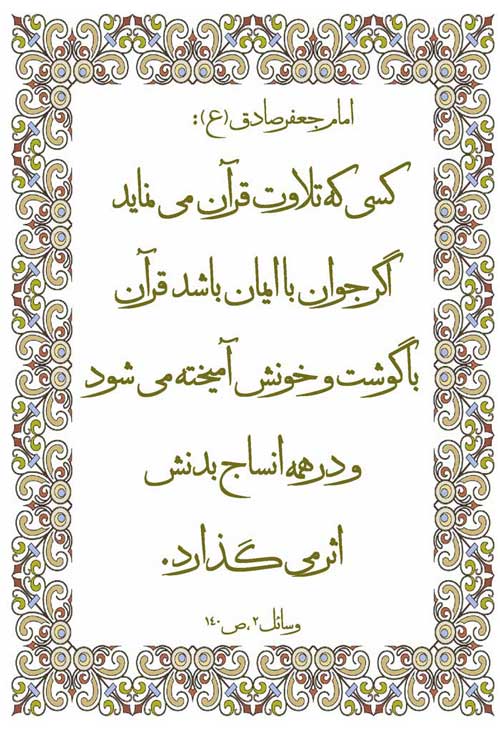 امام جعفر صادق (ع):
کسی که تلاوت قرآن می نماید
اگر جوان با ایمان باشد قرآن
با گوشت و خونش آمیخته می شود
و در همه انساج بدنش
اثر می گذارد.
وسائل ۲، ص ۱۴۰